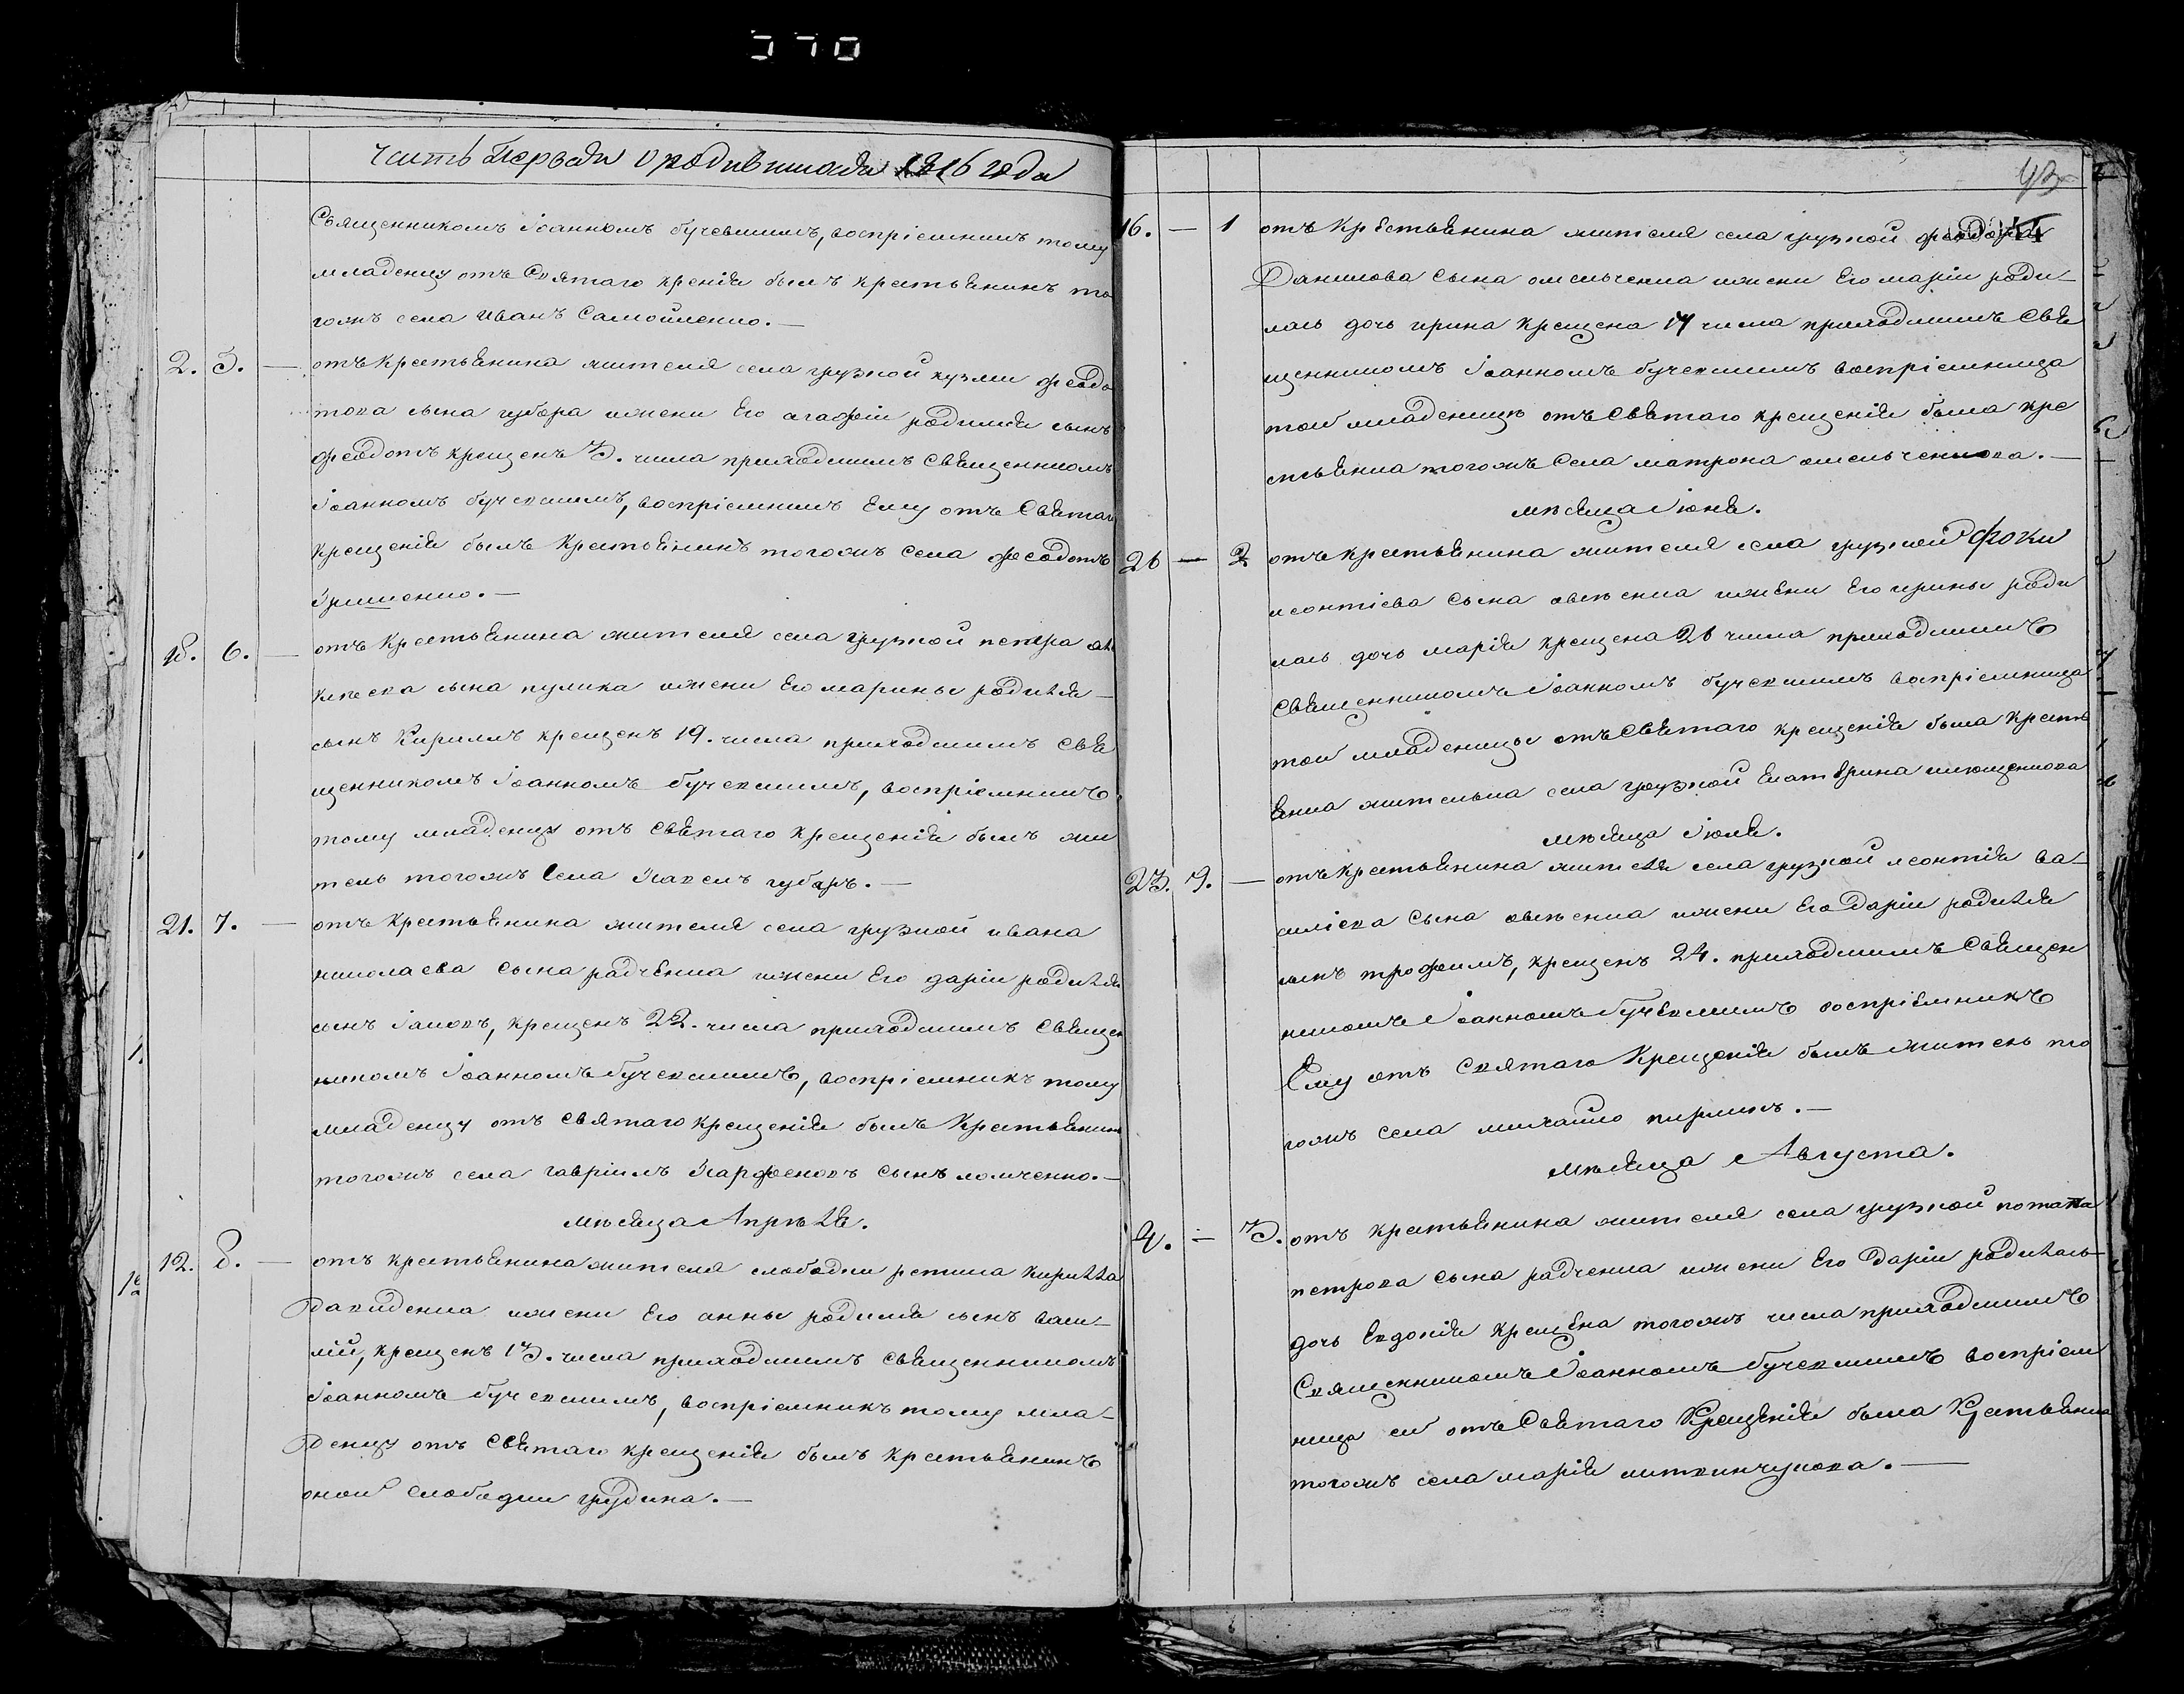 Часть Первая о родившихся 1816 года
Священникомъ Іоанномъ бучевскимъ, воспріемникъ тому
младенцу отъ Святаго креніе былъ крестьянинъ то
гожъ села Иванъ Самойленко. —
2. 5. — отъ крестьянина жителя села грузкой кузми федо
това сына губара ижени Его агафіи родился сынъ
федотъ крещенъ 3. числа приходскимъ Священникомъ
Іоанномъ бучевскимъ, воспріемникъ Ему отъ Святаго
крещенія былъ крестьянинъ тогожъ села феодотъ
Гришенко. —
18. 6. — отъ крестьянина жителя села грузкой петра
сына кулика ижени Его марины родился —
сынъ Кирилъ крещенъ 19. числа приходскимъ Свя
щенникомъ Іоанномъ бучевскимъ, воспріемникъ
тому младенцу отъ Святаго крещенія былъ жи
тель тогожъ Села Павелъ губаръ. —
21. 7. — отъ крестьянина жителя села грузкой ивана
николаева сына радченка ижени Его даріи родился
сынъ Іаковъ, крещенъ 22. числа приходскимъ Священ
никомъ Іоанномъ бучевскимъ, воспріемникъ тому
младенцу отъ святаго крещенія былъ крестьянинъ
тогожъ села гавріилъ Парфеновъ сынъ —
мѣсяца Апрѣля.
12. 8. — отъ крестьянина жителя слободки Кирилла
Давиденка ижени Его анны родился сынъ васи-
лій, крещенъ 13. числа приходскимъ священникомъ
Іоанномъ бучевскимъ, воспріемникъ тому мла-
денцу отъ Святаго крещенія былъ крестьянинъ
оной слободки —
43
16. — 1 отъ крестьянина жителя села грузкой феодора
Данилова сына омельченка ижени Его маріи роди-
лась дочь ирина крещена 17 числа приходскимъ Свя
щенникомъ Іоанномъ бучевскимъ воспріемница
той младеницы отъ Святаго крещенія была кре
стьянка тогожъ Села матрона омельченкова. —
мѣсяца Іюня.
26 — 2 отъ крестьянина жителя села грузкой Фоки
леонтіева сына ижени Его ирины роди
лась дочь марія крещена 26 числа приходскимъ
Священникомъ Іоанномъ бучевскимъ воспріемница
той младеницы отъ Святаго крещенія была кресть
янка жителька села грузкой Екатерина
мѣсяца Іюля.
23. 9. — отъ крестьянина жителя села грузкой леонтія ва-
силіева сына ижени Его Даріи родился
сынъ трофимъ, крещенъ 24. приходскимъ Священ
никомъ Іоанномъ бучевскимъ воспріемникъ
Ему отъ Святаго Крещенія былъ житель то
гожъ села михайло —
мѣсяца Августа.
4. — 3. отъ крестьянина жителя села грузкой потапа
петрова сына радченка ижени Его Даріи родилась
дочь Евдокія крещена тогожъ числа приходскимъ
Священникомъ Іоанномъ бучевскимъ воспріем
ница ей отъ Святаго Крещенія была Крестьянка
тогожъ села марія —